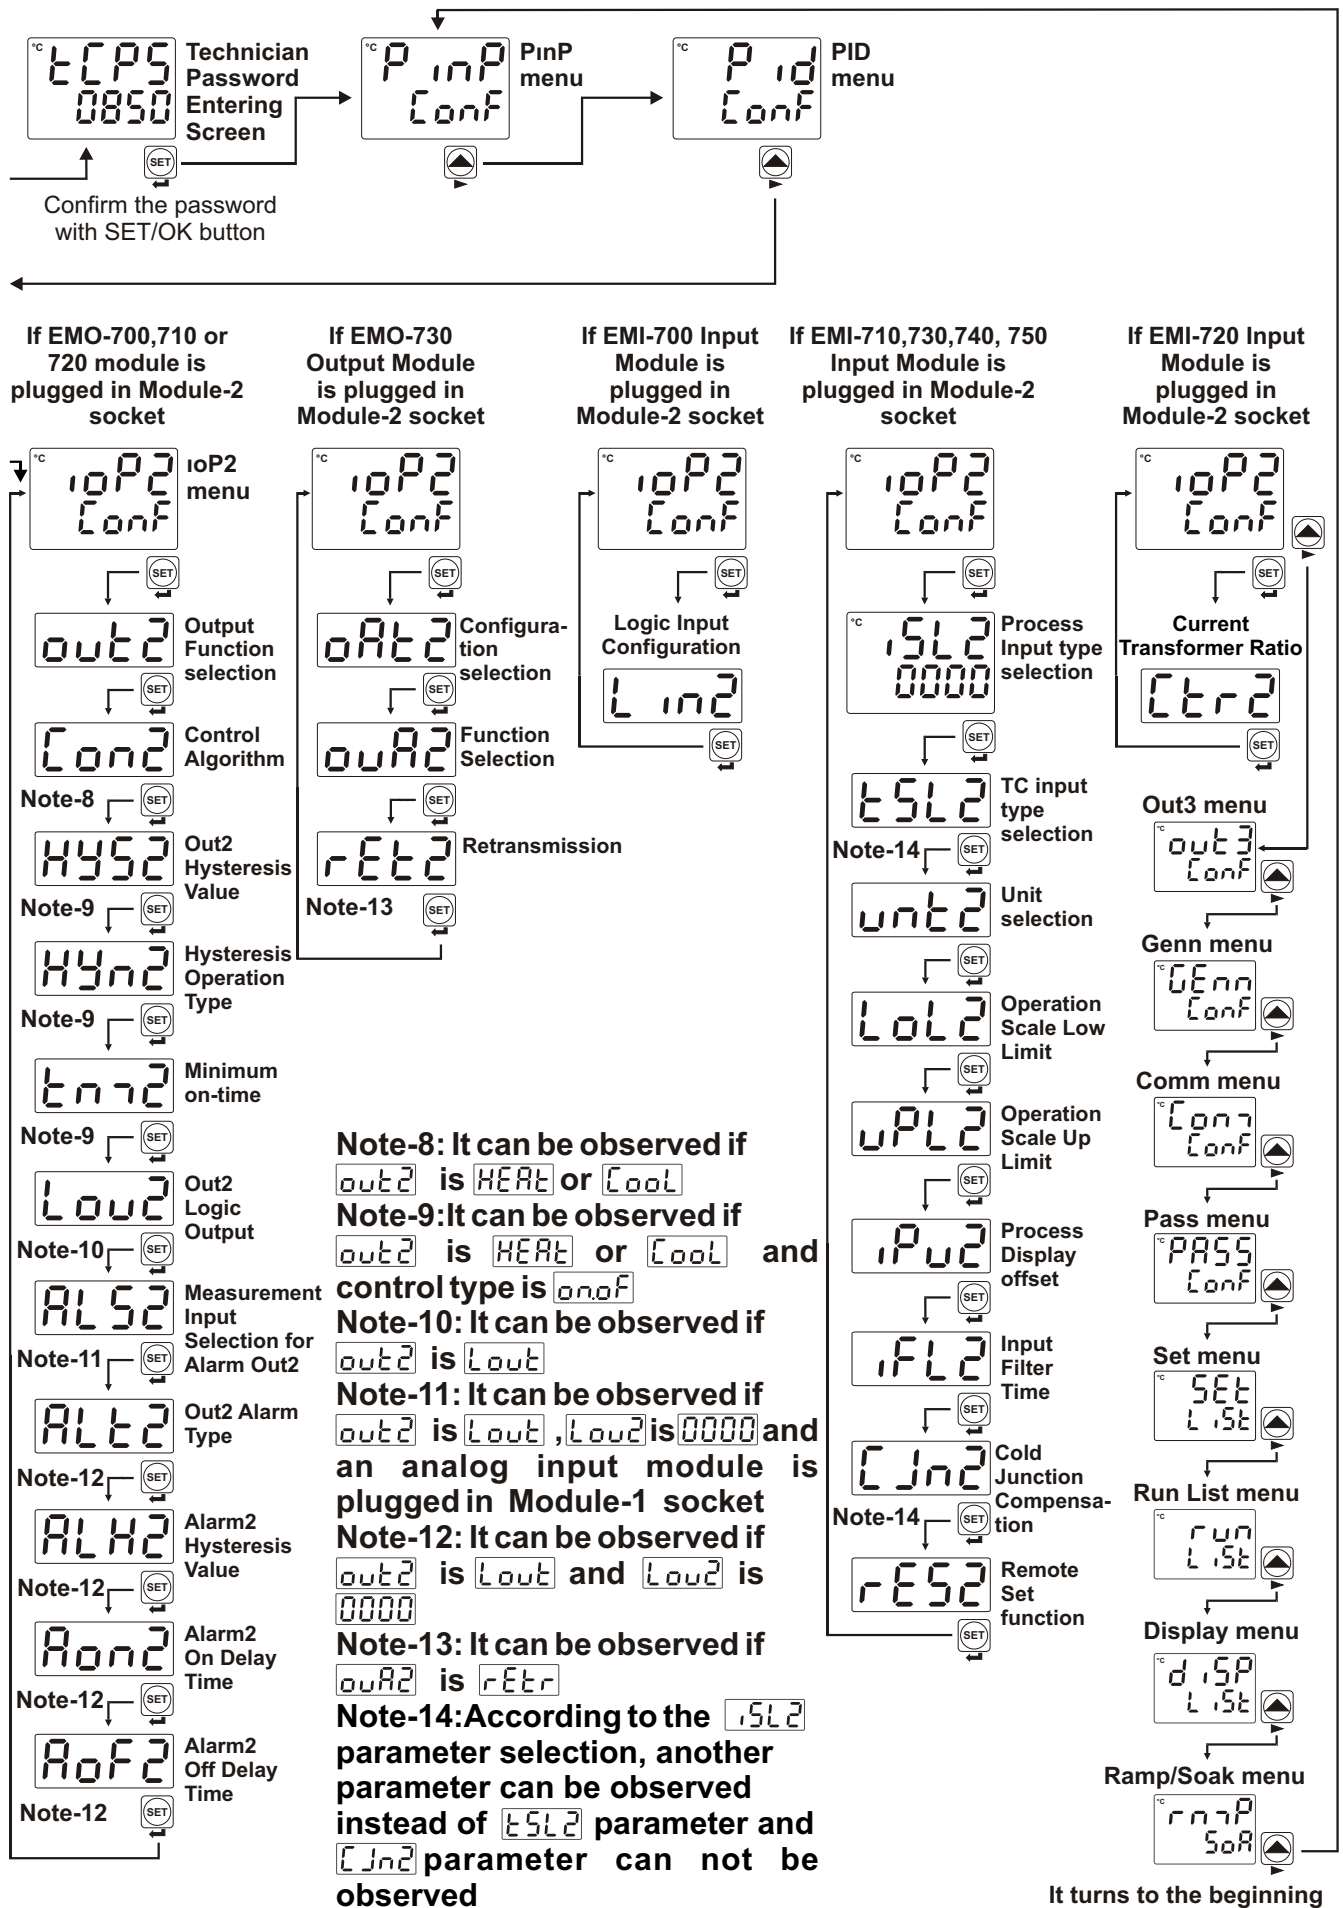 °C
tCPS
0850
Technician
Password
Entering
Screen
SET
Confirm the password
with SET/OK button
°C
PınP
ConF
PınP
menu
°C
Pıd
ConF
PID
menu
If EMO-700,710 or
720 module is
plugged in Module-2
socket
°C
ıoP2
ConF
ıoP2
menu
SET
out2
Output
Function
selection
SET
Con2
Control
Algorithm
Note-8
SET
HYS2
Out2
Hysteresis
Value
Note-9
SET
HYn2
Hysteresis
Operation
Type
Note-9
SET
tnı2
Minimum
on-time
Note-9
SET
Lou2
Out2
Logic
Output
Note-10
SET
ALS2
Measurement
Input
Selection for
Alarm Out2
Note-11
SET
ALt2
Out2 Alarm
Type
Note-12
SET
ALH2
Alarm2
Hysteresis
Value
Note-12
SET
Aon2
Alarm2
On Delay
Time
Note-12
SET
AoF2
Alarm2
Off Delay
Time
Note-12
SET
If EMO-730
Output Module
is plugged in
Module-2 socket
°C
ıoP2
ConF
SET
oAt2
Configura-
tion
selection
SET
ouA2
Function
Selection
SET
rEt2
Retransmission
Note-13
SET
If EMI-700 Input
Module is
plugged in
Module-2 socket
°C
ıoP2
ConF
SET
Logic Input
Configuration
Lın2
SET
If EMI-710,730,740, 750
Input Module is
plugged in Module-2
socket
°C
ıoP2
ConF
SET
°C
ıSL2
0000
Process
Input type
selection
SET
tSL2
TC input
type
selection
Note-14
SET
unt2
Unit
selection
SET
LoL2
Operation
Scale Low
Limit
SET
uPL2
Operation
Scale Up
Limit
SET
ıPu2
Process
Display
offset
SET
ıFL2
Input
Filter
Time
SET
CJn2
Cold
Junction
Compensa-
tion
Note-14
SET
rES2
Remote
Set
function
SET
If EMI-720 Input
Module is
plugged in
Module-2 socket
°C
ıoP2
ConF
SET
Current
Transformer Ratio
Ctr2
SET
Out3 menu
°C
out3
ConF
Genn menu
°C
GEnn
ConF
Comm menu
°C
Conı
ConF
Pass menu
°C
PASS
ConF
Set menu
°C
SEt
LıSt
Run List menu
°C
run
LıSt
Display menu
°C
dıSP
LıSt
Ramp/Soak menu
°C
rnıP
SoA
It turns to the beginning
Note-8: It can be observed if
out2 is HEAt or CooL
Note-9:It can be observed if
out2 is HEAt or CooL and
control type is on.oF
Note-10: It can be observed if
out2 is Lout
Note-11: It can be observed if
out2 is Lout ,Lou2 is 0000 and
an analog input module is
plugged in Module-1 socket
Note-12: It can be observed if
out2 is Lout and Lou2 is
0000
Note-13: It can be observed if
ouA2 is rEtr
Note-14:According to the ıSL2
parameter selection, another
parameter can be observed
instead of tSL2 parameter and
CJn2 parameter can not be
observed